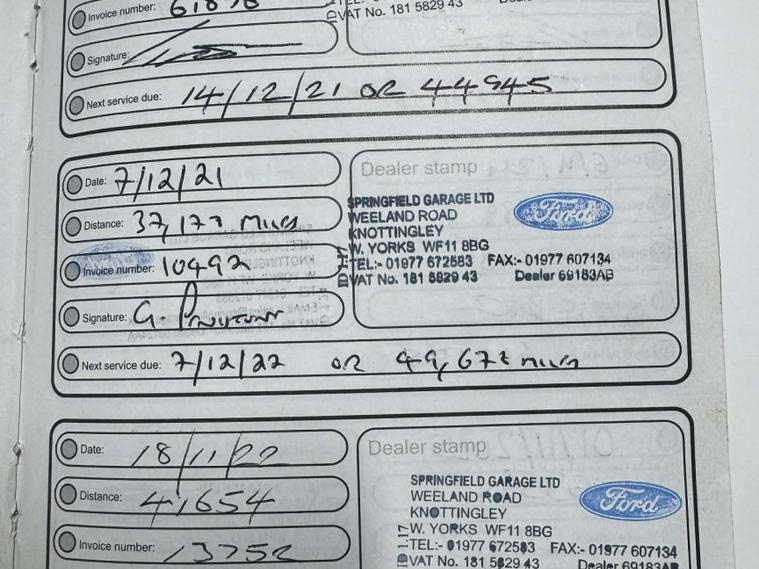 Invoice number: 61878
VAT No. 181 5829 43
Signature:
Next service due: 14/12/21 OR 44945
Date: 7/12/21
Dealer stamp
Distance: 37,177 MILES
SPRINGFIELD GARAGE LTD
WEELAND ROAD
KNOTTINGLEY
W. YORKS WF11 8BG
TEL:- 01977 672583 FAX:- 01977 607134
VAT No. 181 5829 43 Dealer 69183AB
Ford
Invoice number: 10492
Signature: G.
Next service due: 7/12/22 OR 49,677 MILES
Date: 18/11/22
Dealer stamp
Distance: 41654
SPRINGFIELD GARAGE LTD
WEELAND ROAD
KNOTTINGLEY
W. YORKS WF11 8BG
TEL:- 01977 672583 FAX:- 01977 607134
VAT No. 181 5829 43 Dealer 69183AB
Ford
Invoice number: 13752